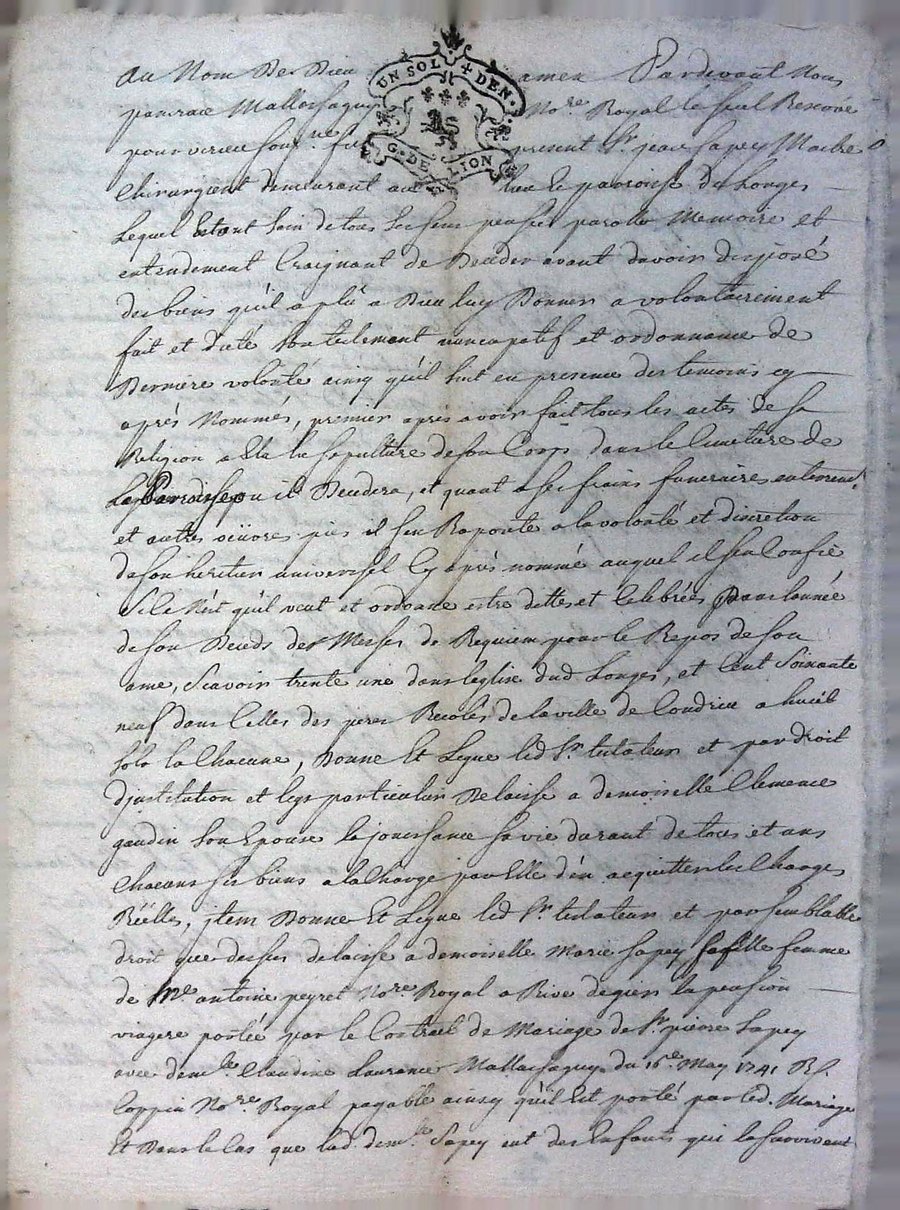 UN SOL 4 DEN.
G. DE LION
au Nom De Dieu amen Pardevant Nous
No.re Royal le seul Reservé
pour present Sr. jean Sapey Maitre
Chirurgient demeurant au lieu et parroisse de Longes
Lequel Estant Sain de tous ses sens pensée parolle Memoire et
entendement Craignant de Deceder avant davoir disposé
des biens qu'il a plû a Dieu luy Donner a volontairement
fait et dicté Son testament nuncupatif et ordonnance de
Derniere volonté ainsy qu'il suit en presence des temoins cy
après Nommés, premier après avoir fait tous les actes de sa
Religion a Elu la sepulture de son Corps dans le Cimetiere de
La Parroisse ou il Decedera, et quant a ses frais funeraires enterrement
et autres oeuvres pies il s'en Raporte a la volonté et discretion
de son heritier universel Cy après nommé auquel il s'en Confie
Si le N'est qu'il veut et ordonne estre dittes et Celebrées Dans lannée
de son Deceds des Messes de Requiem pour le Repos de son
ame, Scavoir trente une dans l'eglise dud Longes, et Cent Soixante
neuf dans Celles des peres Recolés de la ville de Condrieu a huict
sols la Chacune, Donne Et Legue led Sr. testateur et par droit
d'jnstitution et legs particulier Delaisse a demoiselle Clemence
gaudin Son Epouse la jouissance sa vie durant de tous et uns
Chacuns ses biens a la Charge par Elle d'en acquitter les Charges
Réelles, jtem Donne Et Legue led Sr. testateur et par semblable
droit que dessus delaisse a demoiselle Marie Sapey sa fille femme
de Me. antoine peyret No.re Royal a Rive degier la pension
viagere portée par le Contrat de Mariage de Sr. pierre Sapey
avec dem.lle Claudine Laurance Mallassagny du 16e. May 1741 Rs.
Coppin No.re Royal payable ainsy qu'il Est porté par led. Mariage
Et Dans le Cas que lad. dem.lle Sapey eut des Enfants qui la survivent